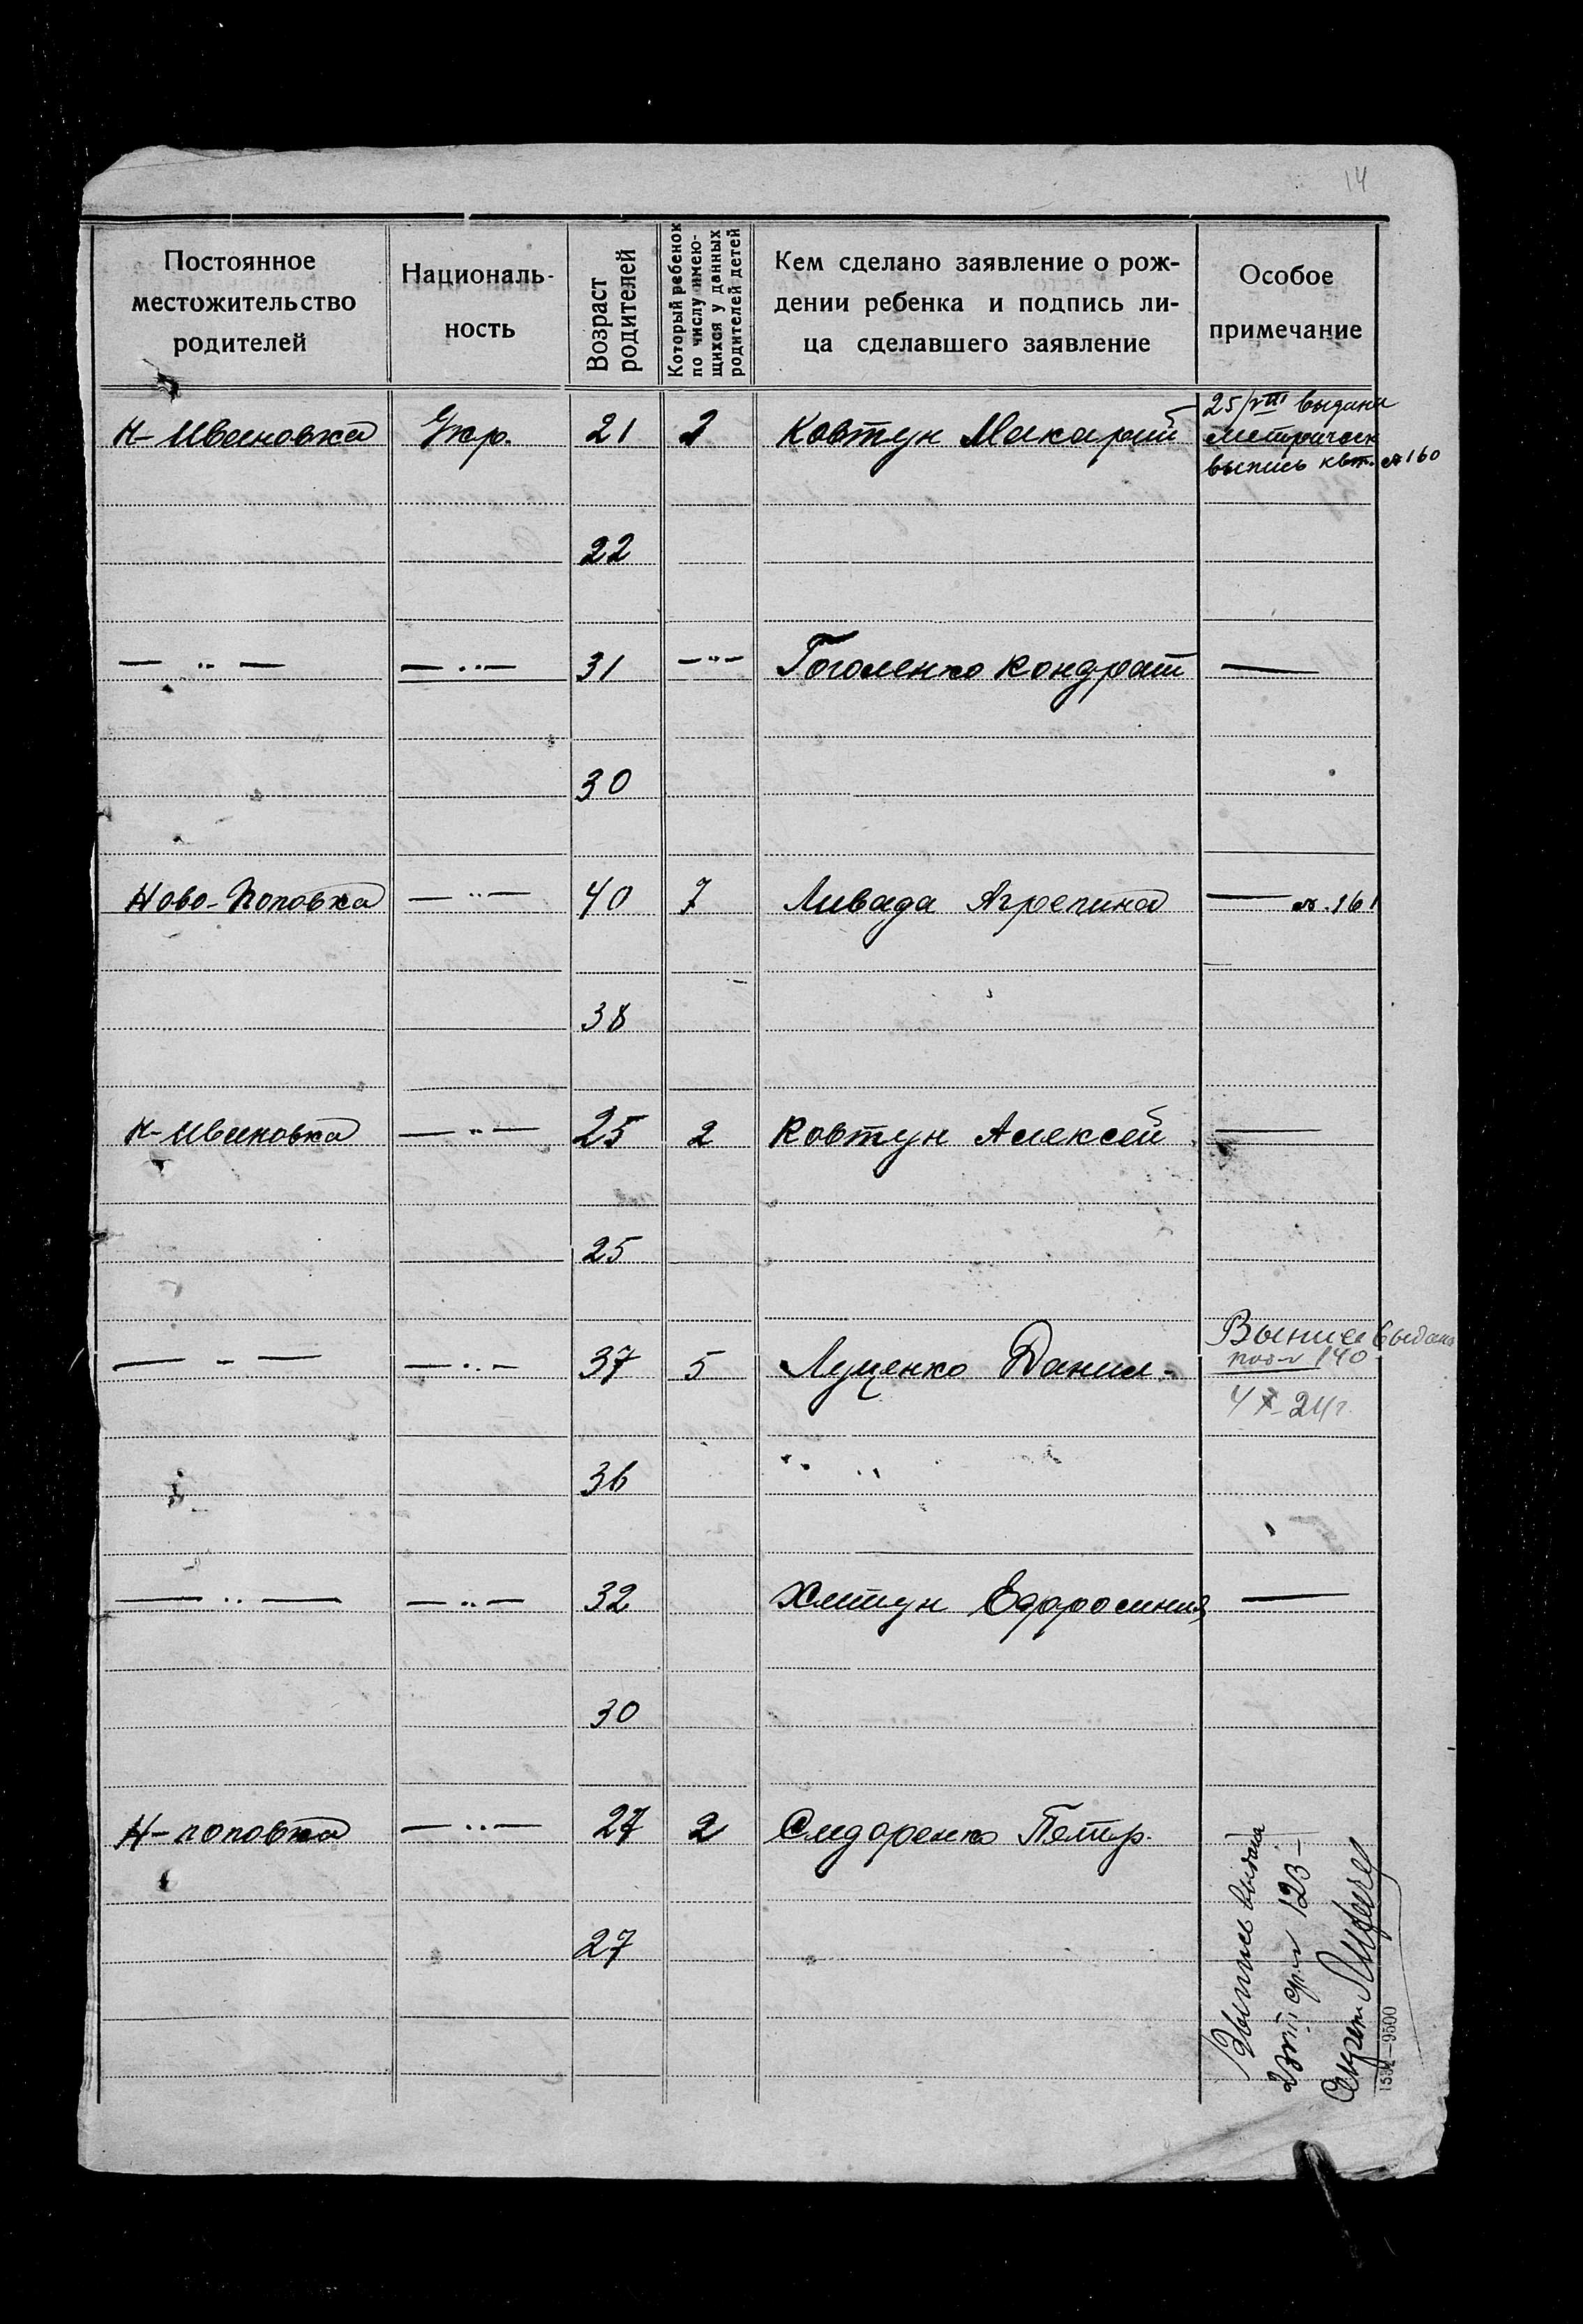 14
Постоянное
местожительство
родителей
Националь-
ность
Возраст
родителей
Который ребенок
по числу имею-
щихся у данных
родителей детей
Кем сделано заявление о рож-
дении ребенка и подпись ли-
ца сделавшего заявление
Особое
примечание
Н-Ивановка Укр. 21 2 Ковтун Макарий
25/VIII выдана
метрическ
выпись квт. № 160
22
— „ — — „ — 31 — „ — Гоголенко Кондрат —
30
Ново-Поповка — „ — 40 7 Ливада Агрепина — № 161
38
Н-Ивановка — „ — 25 2 Ковтун Алексей —
25
— „ — — „ — 37 5 Луценко Данил-
Выпись выдана
140
4 X 24 г.
36 „ „
— „ — — „ — 32 Хлитун Ефросиния —
30
Н-поповка — „ — 27 2 Сидоренко Петр.
27
Выпись выдана
23/VIII 123 —
Секрет
15 —9500